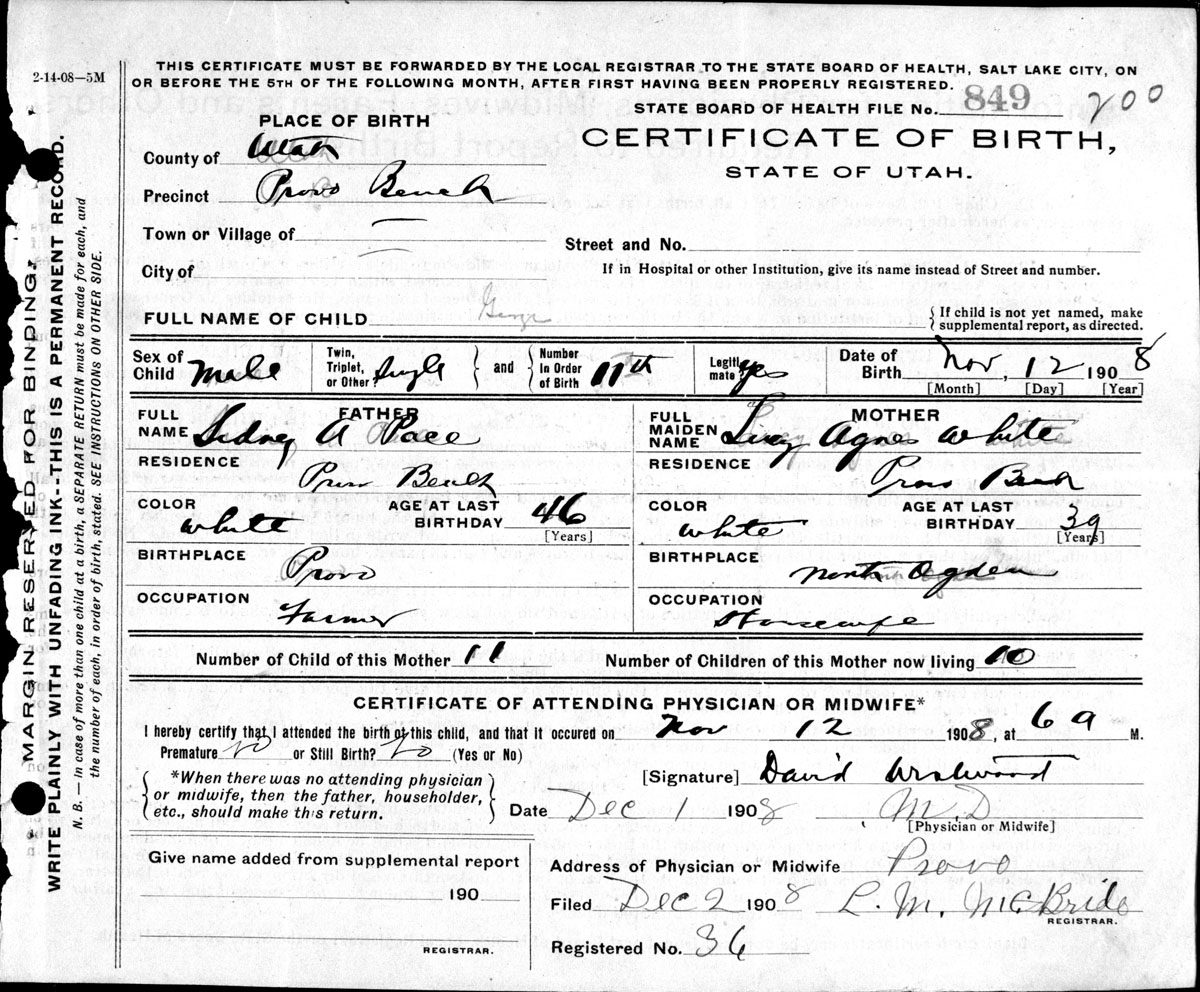 2-14-08—5M
THIS CERTIFICATE MUST BE FORWARDED BY THE LOCAL REGISTRAR TO THE STATE BOARD OF HEALTH, SALT LAKE CITY, ON
OR BEFORE THE 5TH OF THE FOLLOWING MONTH, AFTER FIRST HAVING BEEN PROPERLY REGISTERED.
STATE BOARD OF HEALTH FILE No. 849 200
PLACE OF BIRTH
CERTIFICATE OF BIRTH,
STATE OF UTAH.
County of Utah
Precinct Provo Bench
Town or Village of —
Street and No.
City of —
If in Hospital or other Institution, give its name instead of Street and number.
FULL NAME OF CHILD George
{ If child is not yet named, make
supplemental report, as directed.
Sex of Child Male
Twin, Triplet, or Other Single } and { Number in Order of Birth 11th
Legitimate? yes
Date of Birth Nov, 12 1908
[Month] [Day] [Year]
FATHER
FULL NAME Sidney A Pace
MOTHER
FULL MAIDEN NAME Agnes White
RESIDENCE Provo Bench
RESIDENCE Provo Bench
COLOR white AGE AT LAST BIRTHDAY 46 [Years]
COLOR white AGE AT LAST BIRTHDAY 39 [Years]
BIRTHPLACE Provo
BIRTHPLACE North Ogden
OCCUPATION Farmer
OCCUPATION Housewife
Number of Child of this Mother 11
Number of Children of this Mother now living 10
CERTIFICATE OF ATTENDING PHYSICIAN OR MIDWIFE*
I hereby certify that I attended the birth of this child, and that it occured on Nov 12 1908, at 6 a M.
Premature No or Still Birth? No (Yes or No)
{ *When there was no attending physician
or midwife, then the father, householder,
etc., should make this return. }
[Signature] David Westwood
Date Dec 1 1908 M.D
[Physician or Midwife]
Give name added from supplemental report
190
REGISTRAR.
Address of Physician or Midwife Provo
Filed Dec 2 1908 L. M. McBride
REGISTRAR.
Registered No. 36
MARGIN RESERVED FOR BINDING.
WRITE PLAINLY WITH UNFADING INK--THIS IS A PERMANENT RECORD.
N. B. — In case of more than one child at a birth, a SEPARATE RETURN must be made for each, and
the number of each, in order of birth stated. SEE INSTRUCTIONS ON OTHER SIDE.